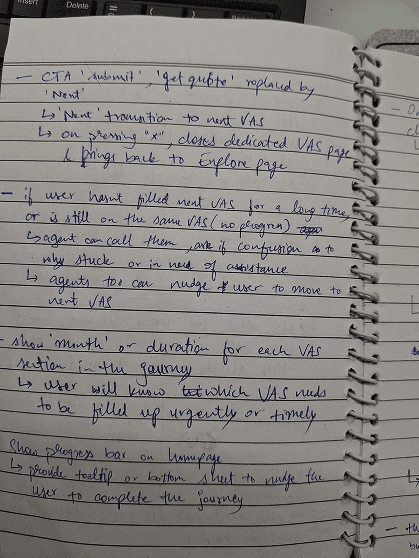 Insert
Delete
— CTA 'submit', 'get quote' replaced by
'Next'
↳ 'Next' transition to next VAS
↳ on pressing "x", closes dedicated VAS page
& brings back to Explore page
— if user hasnt filled next VAS for a long time,
or is still on the same VAS (no progress)
↳ agent can call them, ask if confusion as to
why stuck or in need of assistance
↳ agents too can nudge user to move to
next VAS
- show 'month' or duration for each VAS
section in the journey
↳ user will know which VAS needs
to be filled up urgently or timely
Show progress bar on homepage
↳ provide tooltip or bottom sheet to nudge the
user to complete the journey